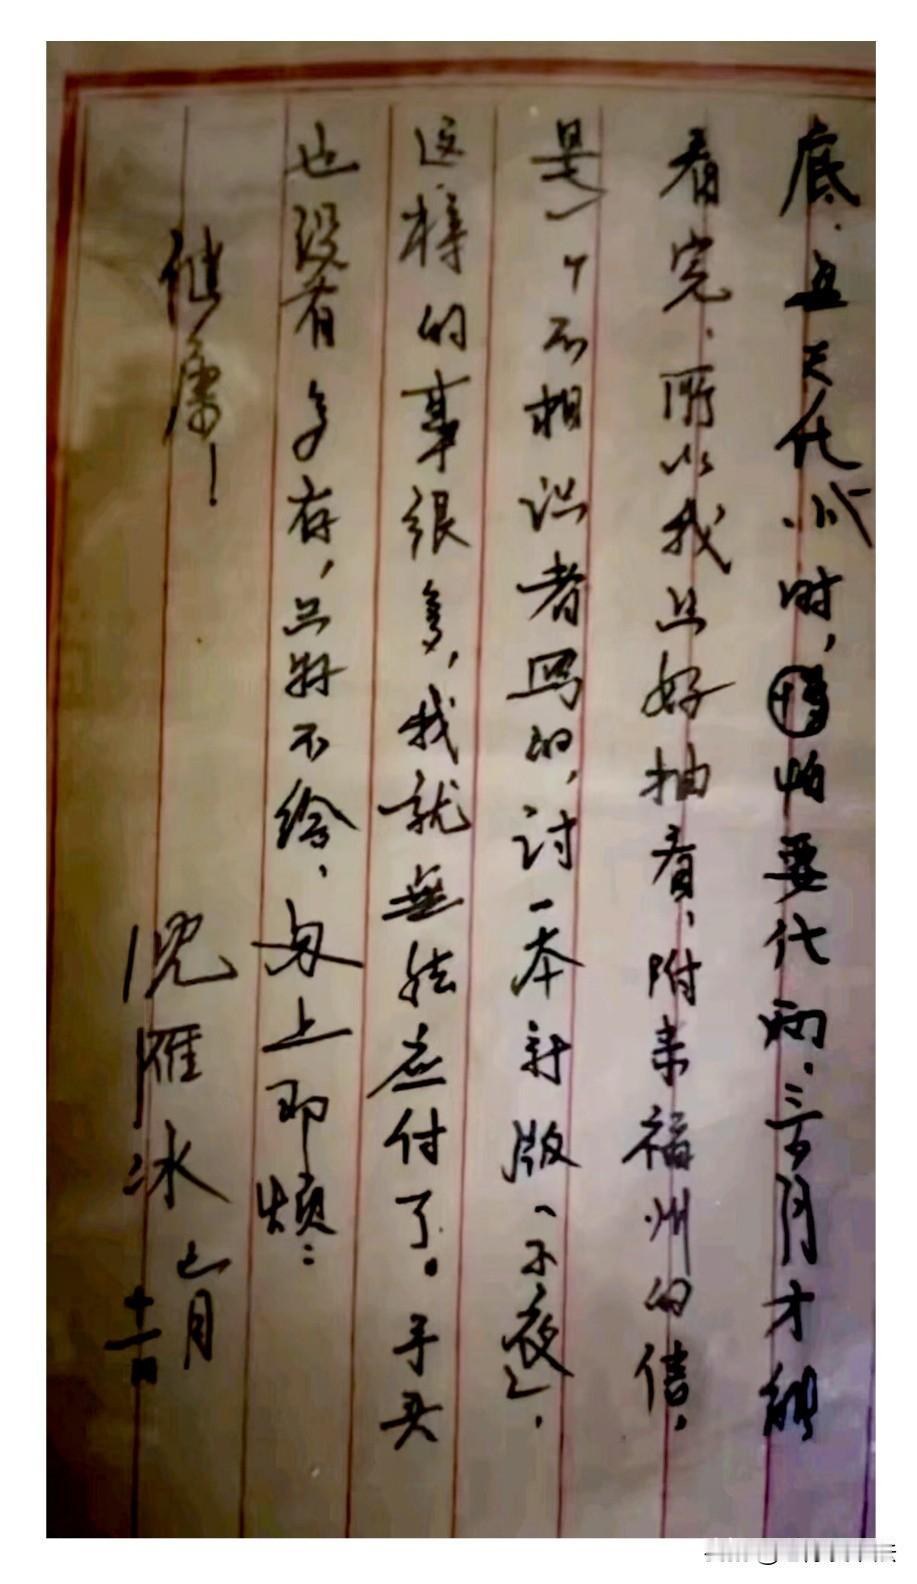 底、五天代小时，怕要代两、三个月才能
看完、所以我只好抽看，附来福州的信，
是一个不相识者写的，讨一本新版「子夜」，
这样的事很多，我就無法应付了。手头
也没有多存，只好不给、匆上即颂：
健康！
沈雁冰 七月
十一日